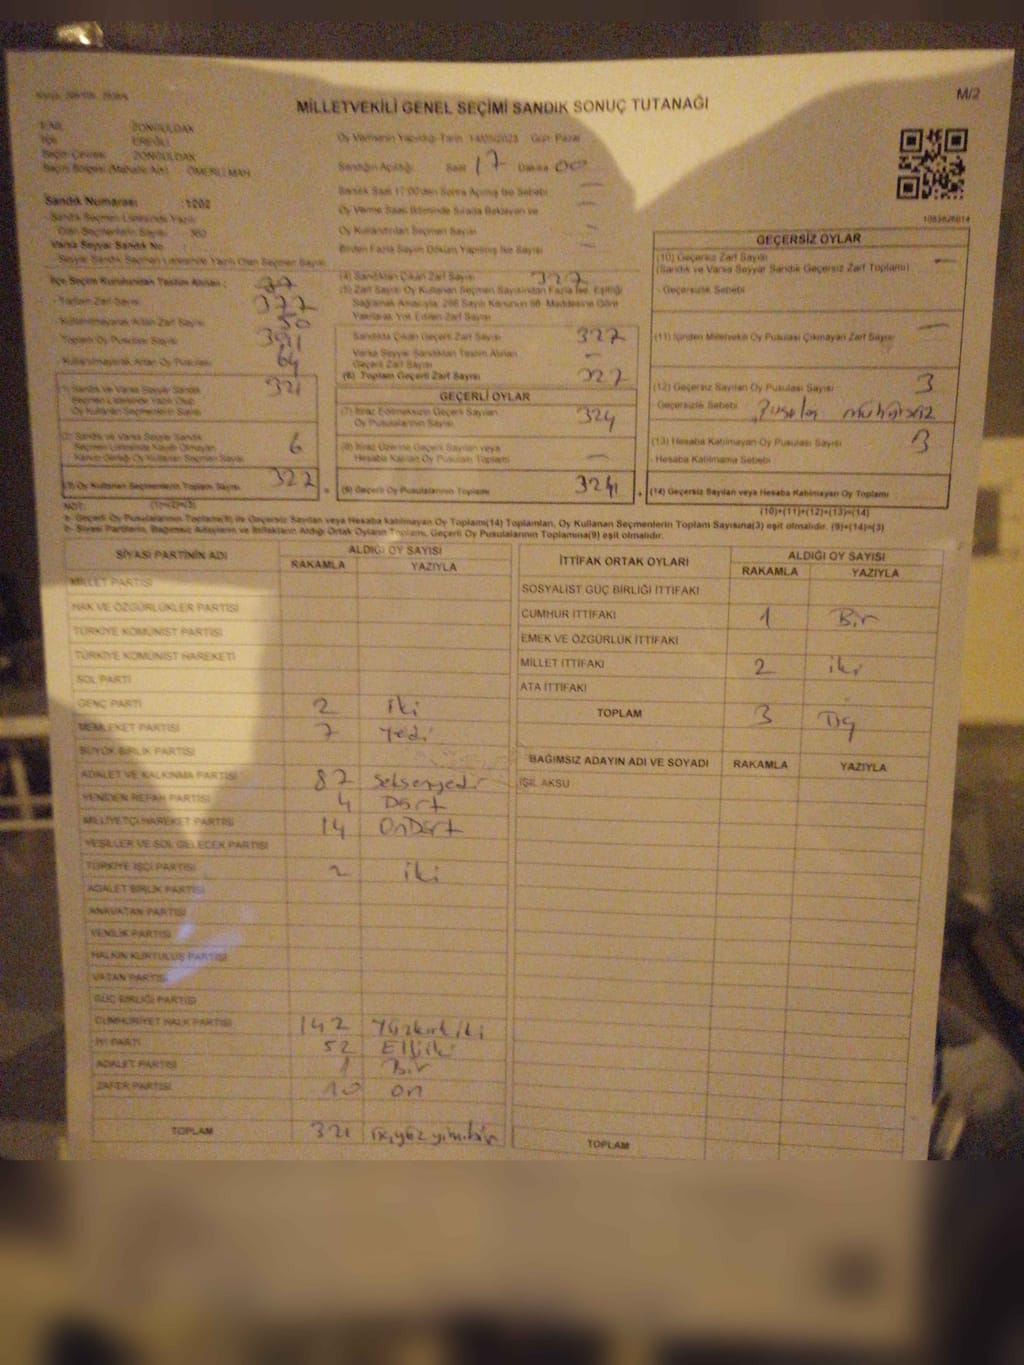 MİLLETVEKİLİ GENEL SEÇİMİ SANDIK SONUÇ TUTANAĞI
M/2
İli ZONGULDAK
İlçe EREĞLİ
Seçim Çevresi ZONGULDAK
Seçim Bölgesi (Mahalle Adı) ÖMERLİ MAH.
Oy Vermenin Yapıldığı Tarih 14/05/2023 Gün Pazar
Sandığın Açıldığı Saat 17 Dakika 00
Sandık Saat 17:00'den Sonra Açılmış İse Sebebi —
Oy Verme Saati Bitiminde Sırada Bekleyen ve —
Oy Kullandırılan Seçmen Sayısı
Birden Fazla Sayım Döküm Yapılmış İse Sayısı —
Sandık Numarası :1002
- Sandık Seçmen Listesinde Yazılı
Olan Seçmenlerin Sayısı 360
Varsa Seyyar Sandık No :
- Seyyar Sandık Seçmen Listesinde Yazılı Olan Seçmen Sayısı
İlçe Seçim Kurulundan Teslim Alınan :
- Toplam Zarf Sayısı 377
- Kullanılmayarak Artan Zarf Sayısı 50
Toplam Oy Pusulası Sayısı 391
- Kullanılmayarak Artan Oy Pusulası 64
(1) Sandık ve Varsa Seyyar Sandık 321
Seçmen Listesinde Yazılı Olup
Oy Kullanan Seçmenlerin Sayısı
(2) Sandık ve Varsa Seyyar Sandık 6
Seçmen Listesinde Kayıtlı Olmayan
Kanun Gereği Oy Kullanan Seçmen Sayısı
(3) Oy Kullanan Seçmenlerin Toplam Sayısı 327
(1)+(2)=(3)
(4) Sandıktan Çıkan Zarf Sayısı 327
(5) Zarf Sayısı Oy Kullanan Seçmen Sayısından Fazla İse, Eşitliği
Sağlamak Amacıyla, 298 Sayılı Kanunun 98. Maddesine Göre
Yakılarak Yok Edilen Zarf Sayısı
Sandıkta Çıkan Geçerli Zarf Sayısı 327
Varsa Seyyar Sandıktan Teslim Alınan —
Geçerli Zarf Sayısı
(6) Toplam Geçerli Zarf Sayısı 327
GEÇERLİ OYLAR
(7) İtiraz Edilmeksizin Geçerli Sayılan 324
Oy Pusulalarının Sayısı
(8) İtiraz Üzerine Geçerli Sayılan veya —
Hesaba Katılan Oy Pusulası Toplamı
(9) Geçerli Oy Pusulalarının Toplamı 324
1083826014
GEÇERSİZ OYLAR
(10) Geçersiz Zarf Sayısı —
(Sandık ve Varsa Seyyar Sandık Geçersiz Zarf Toplamı)
- Geçersizlik Sebebi
(11) İçinden Milletvekili Oy Pusulası Çıkmayan Zarf Sayısı —
(12) Geçersiz Sayılan Oy Pusulası Sayısı 3
- Geçersizlik Sebebi Pusula mühürsüz
(13) Hesaba Katılmayan Oy Pusulası Sayısı 3
- Hesaba Katılmama Sebebi
(14) Geçersiz Sayılan veya Hesaba Katılmayan Oy Toplamı
(10)+(11)+(12)+(13)=(14)
NOT:
a- Geçerli Oy Pusulalarının Toplamı(9) ile Geçersiz Sayılan veya Hesaba katılmayan Oy Toplamı(14) Toplamları, Oy Kullanan Seçmenlerin Toplam Sayısına(3) eşit olmalıdır. (9)+(14)=(3)
b- Siyasi Partilerin, Bağımsız Adayların ve İttifakların Aldığı Ortak Oyların Toplamı, Geçerli Oy Pusulalarının Toplamına(9) eşit olmalıdır.
SİYASİ PARTİNİN ADI ALDIĞI OY SAYISI
RAKAMLA YAZIYLA
MİLLET PARTİSİ
HAK VE ÖZGÜRLÜKLER PARTİSİ
TÜRKİYE KOMÜNİST PARTİSİ
TÜRKİYE KOMÜNİST HAREKETİ
SOL PARTİ
GENÇ PARTİ 2 iki
MEMLEKET PARTİSİ 7 yedi
BÜYÜK BİRLİK PARTİSİ
ADALET VE KALKINMA PARTİSİ 87 seksenyedi
YENİDEN REFAH PARTİSİ 4 Dört
MİLLİYETÇİ HAREKET PARTİSİ 14 OnDört
YEŞİLLER VE SOL GELECEK PARTİSİ
TÜRKİYE İŞÇİ PARTİSİ 2 iki
ADALET BİRLİK PARTİSİ
ANAVATAN PARTİSİ
YENİLİK PARTİSİ
HALKIN KURTULUŞ PARTİSİ
VATAN PARTİSİ
GÜÇ BİRLİĞİ PARTİSİ
CUMHURİYET HALK PARTİSİ 142 Yüzkırkiki
İYİ PARTİ 52 Elliiki
ADALET PARTİSİ 1 Bir
ZAFER PARTİSİ 10 on
TOPLAM 321 üçyüzyirmibir
İTTİFAK ORTAK OYLARI ALDIĞI OY SAYISI
RAKAMLA YAZIYLA
SOSYALİST GÜÇ BİRLİĞİ İTTİFAKI
CUMHUR İTTİFAKI 1 Bir
EMEK VE ÖZGÜRLÜK İTTİFAKI
MİLLET İTTİFAKI 2 iki
ATA İTTİFAKI
TOPLAM 3 Üç
BAĞIMSIZ ADAYIN ADI VE SOYADI RAKAMLA YAZIYLA
IŞIL AKSU
TOPLAM